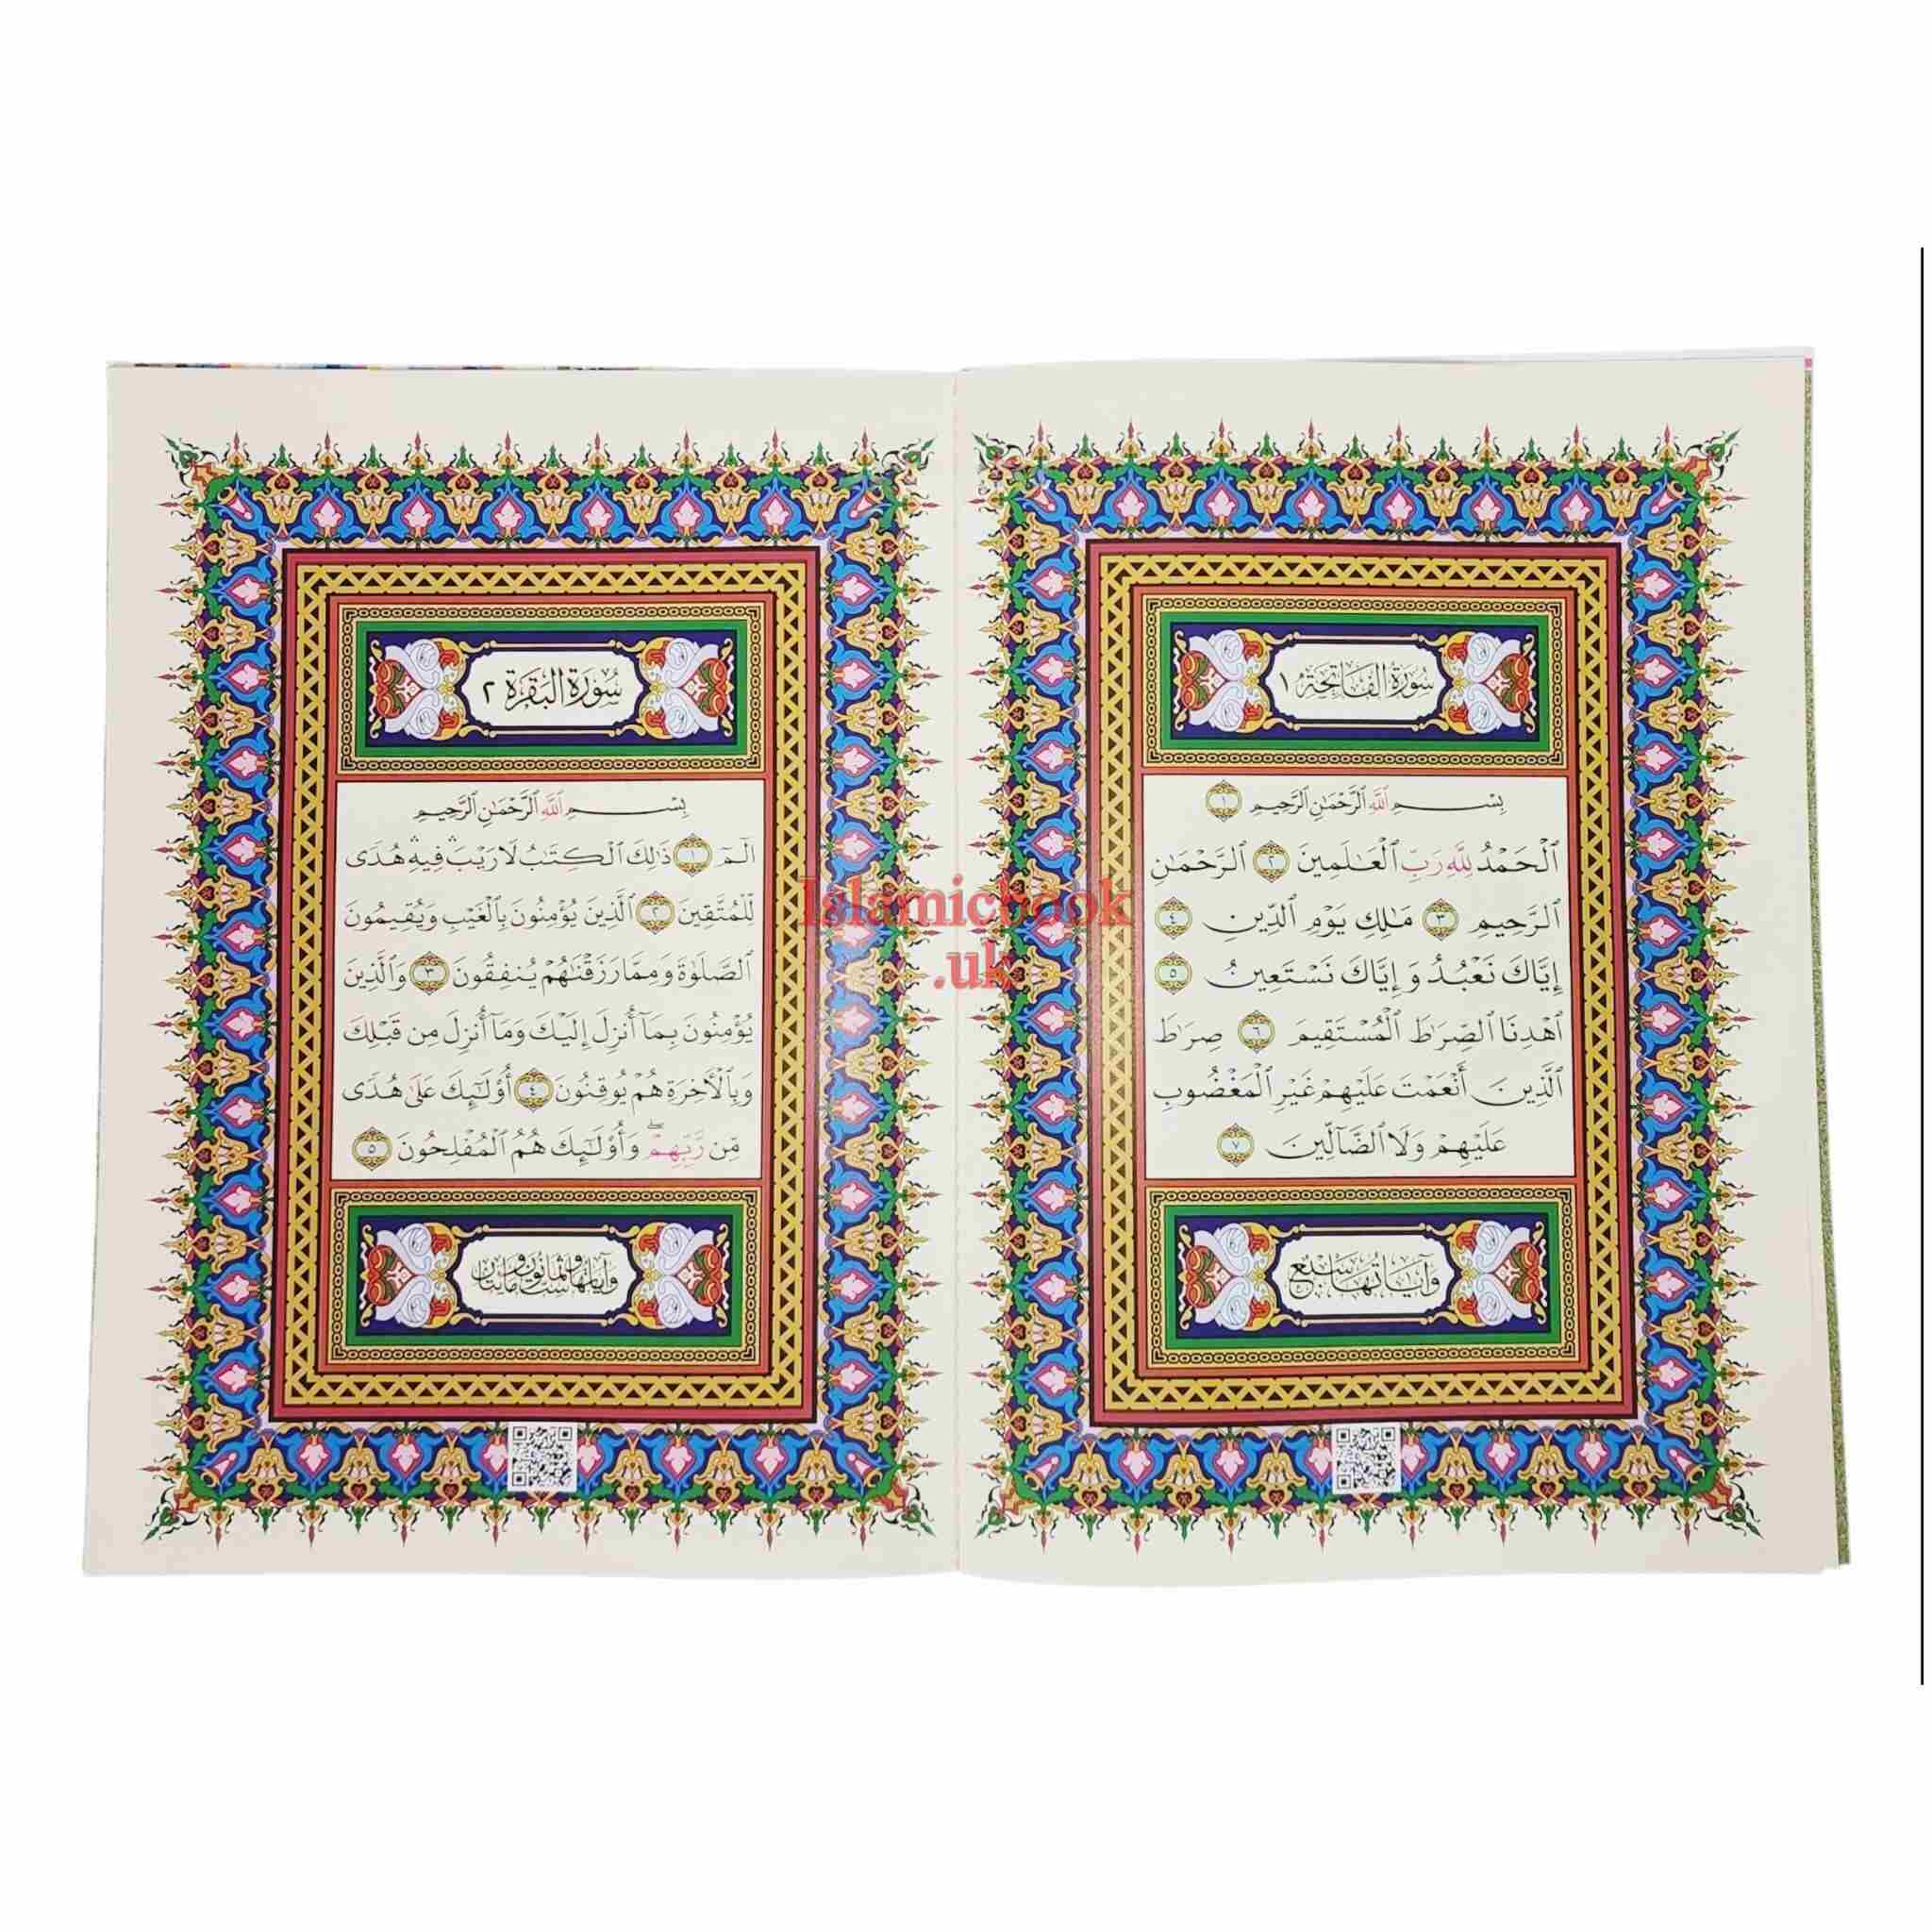 سُورَةُ الفَاتِحَةِ ١
بِسْمِ ٱللَّهِ ٱلرَّحْمَٰنِ ٱلرَّحِيمِ ١
ٱلْحَمْدُ لِلَّهِ رَبِّ ٱلْعَٰلَمِينَ ٢ ٱلرَّحْمَٰنِ
ٱلرَّحِيمِ ٣ مَٰلِكِ يَوْمِ ٱلدِّينِ ٤
إِيَّاكَ نَعْبُدُ وَإِيَّاكَ نَسْتَعِينُ ٥
ٱهْدِنَا ٱلصِّرَٰطَ ٱلْمُسْتَقِيمَ ٦ صِرَٰطَ
ٱلَّذِينَ أَنْعَمْتَ عَلَيْهِمْ غَيْرِ ٱلْمَغْضُوبِ
عَلَيْهِمْ وَلَا ٱلضَّآلِّينَ ٧
وَآيَاتُهَا سَبْعٌ
سُورَةُ البَقَرَةِ ٢
بِسْمِ ٱللَّهِ ٱلرَّحْمَٰنِ ٱلرَّحِيمِ
الٓمٓ ١ ذَٰلِكَ ٱلْكِتَٰبُ لَا رَيْبَ ۛ فِيهِ ۛ هُدًى
لِّلْمُتَّقِينَ ٢ ٱلَّذِينَ يُؤْمِنُونَ بِٱلْغَيْبِ وَيُقِيمُونَ
ٱلصَّلَوٰةَ وَمِمَّا رَزَقْنَٰهُمْ يُنفِقُونَ ٣ وَٱلَّذِينَ
يُؤْمِنُونَ بِمَآ أُنزِلَ إِلَيْكَ وَمَآ أُنزِلَ مِن قَبْلِكَ
وَبِٱلْأَخِرَةِ هُمْ يُوقِنُونَ ٤ أُوْلَٰٓئِكَ عَلَىٰ هُدًى
مِّن رَّبِّهِمْ ۖ وَأُوْلَٰٓئِكَ هُمُ ٱلْمُفْلِحُونَ ٥
وَآيَاتُهَا سِتٌّ وَثَمَانُونَ وَمِائَتَانِ
Islamicbook
.uk